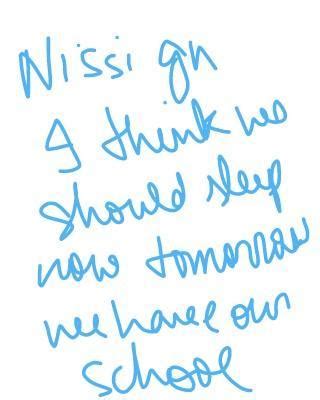 Nissi gn
I think we
should sleep
now tomorrow
we have our
school